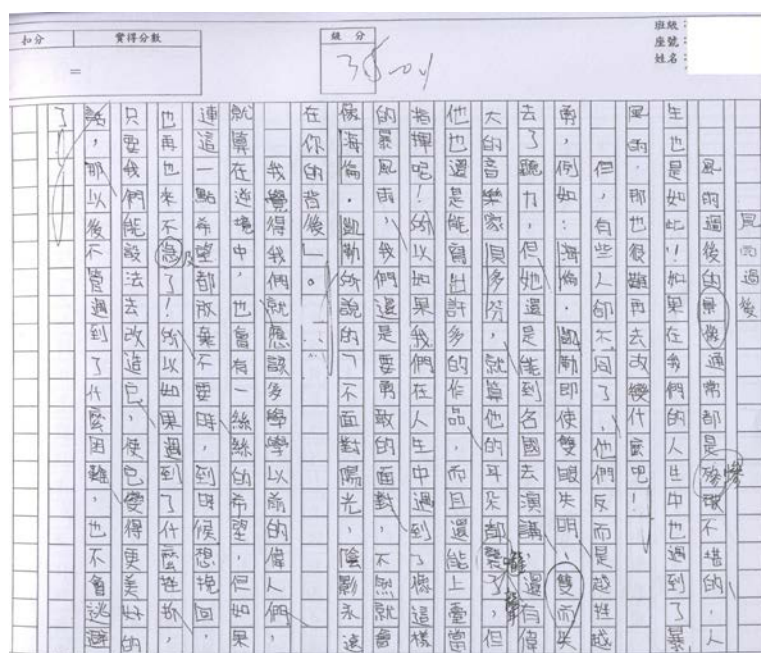 扣分
實得分數
=
級分
班級：
座號：
姓名：
風雨過後
風雨過後的景像通常都是殘破不堪的，人
生也是如此！如果在我們的人生中也遇到了暴
風雨，那也很難再去改變什麼吧！
但，有些人卻不同了，他們反而是越挫越
勇，例如：海倫．凱勒即使雙眼失明、雙而失
去了聽力，但她還是能到各國去演講，還有偉
大的音樂家貝多芬，就算他的耳朵都聾了，但
他也還是能寫出許多的作品，而且還能上臺當
指揮呢！所以如果我們在人生中遇到了像這樣
的暴風雨，我們還是要勇敢的面對，不然就會
像海倫．凱勒所說的「不面對陽光，陰影永遠
在你的背後」。
我覺得我們就應該多學學以前的偉人們，
就算在逆境中，也會有一絲絲的希望，但如果
連這一點希望都放棄不要時，到時候想挽回，
也再也來不急了！所以如果遇到了什麼挫折，
只要我們能設法去改造它，使它變得更美好的
話，那以後不管遇到了什麼困難，也不會逃避
了！